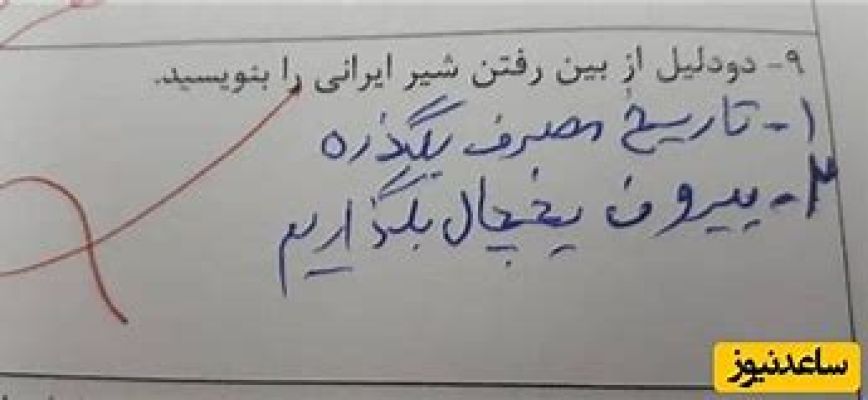 ۹- دودلیل از بین رفتن شیر ایرانی را بنویسید.
۱- تاریخ مصرف بگذره
۲- بیرون یخچال بگذاریم
ساعدنیوز